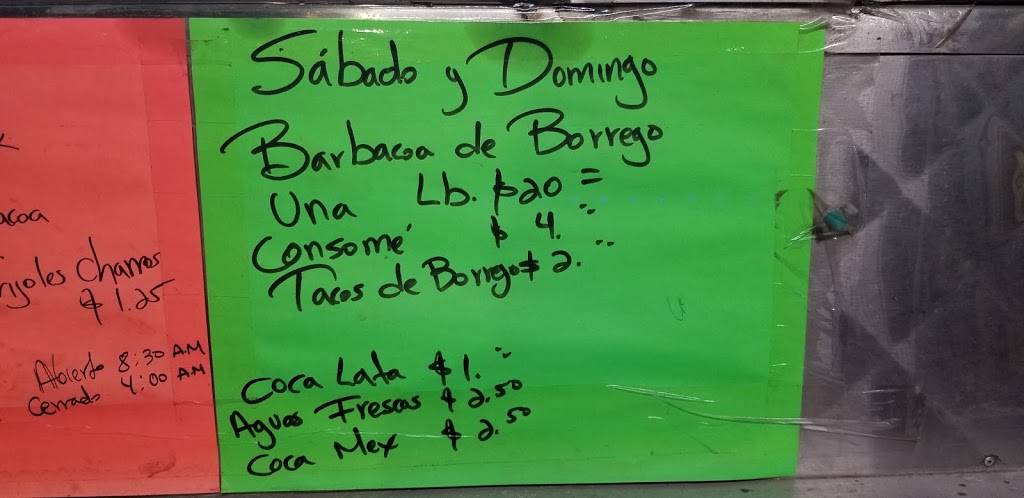 rijoles Charros
$ 1.25
Abierto 8:30 A.M
Cerrado 4:00 A.M
Sábado y Domingo
Barbacoa de Borrego
Una Lb. $20 =
Consomé $ 4.
Tacos de Borrego $ 2.
Coca Lata $ 1.
Aguas Frescas $ 2.50
Coca Mex $ 2.50